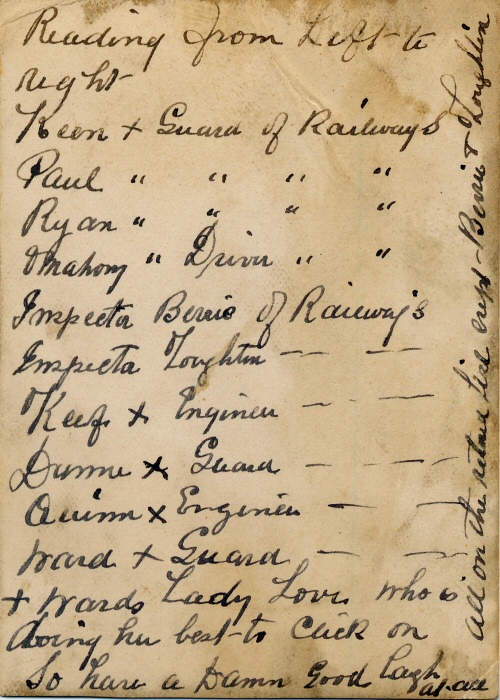 Reading from Left to
right
Keen + Guard of Railways
Paul " " " "
Ryan " " " "
Omahony " Driver " "
Inspector Berrie of Railways
Inspecta Loughlin — — —
Keefe + Engineer — — —
Dunne + Guard — — —
Quinn + Engineer — —
Ward + Guard — —
+ Wards Lady Love who is
doing her best to Click on
So have a Damn Good laugh at all
all on the retired list except Berrie & Loughlin